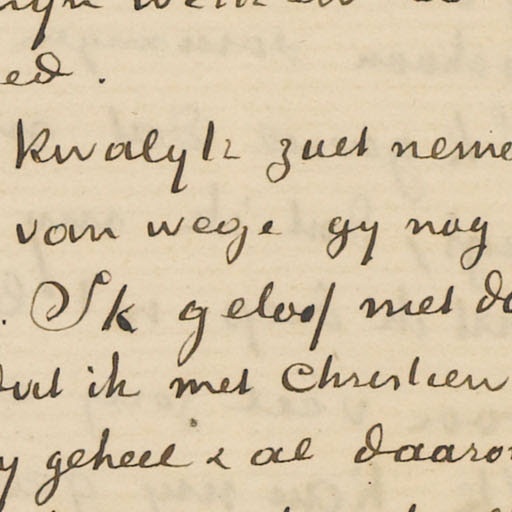 ed.
kwalyk zult neme
van wege gy nog
. Ik geloof met da
dat ik met Christien
y geheel & al daaro